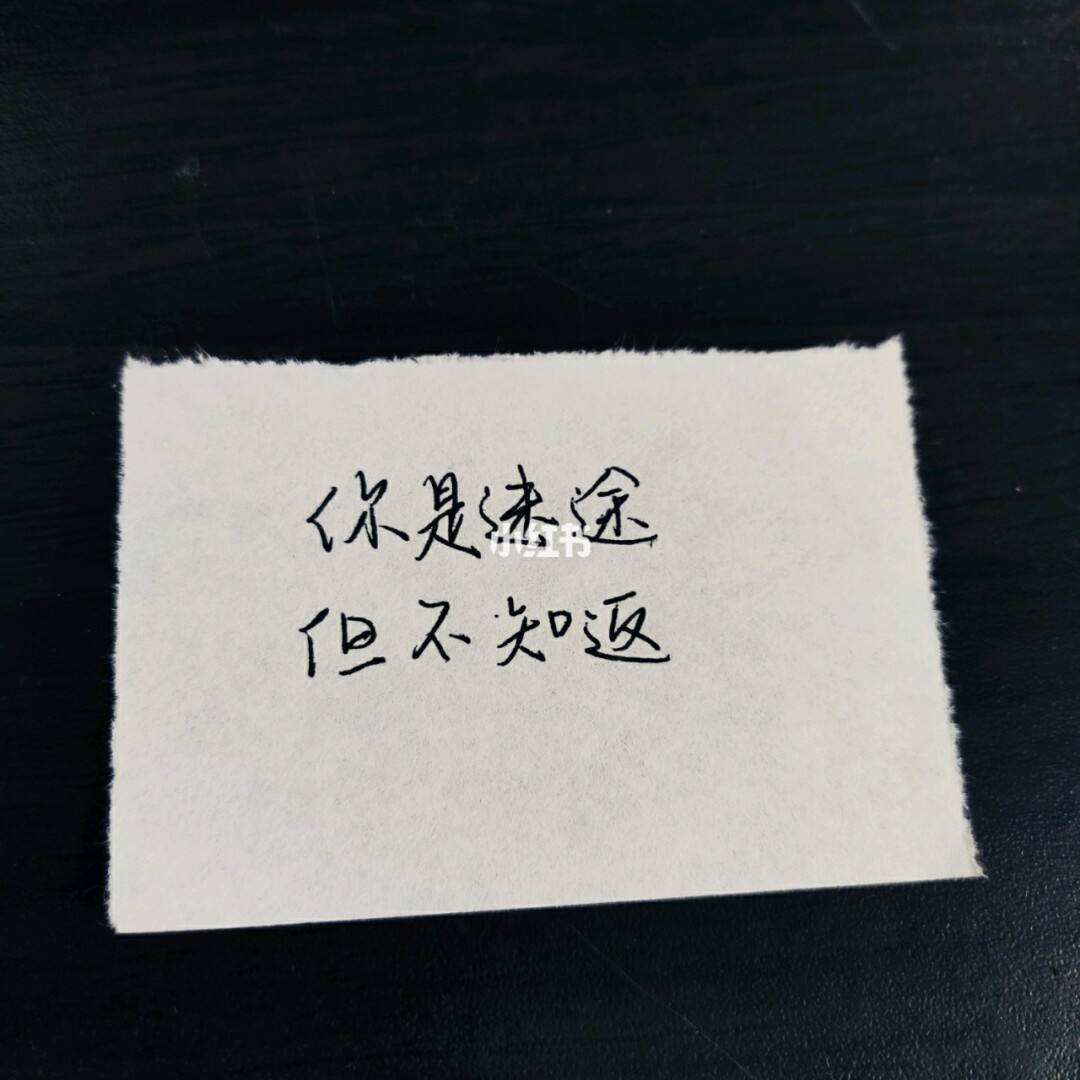 你是迷途
小红书
但不知返